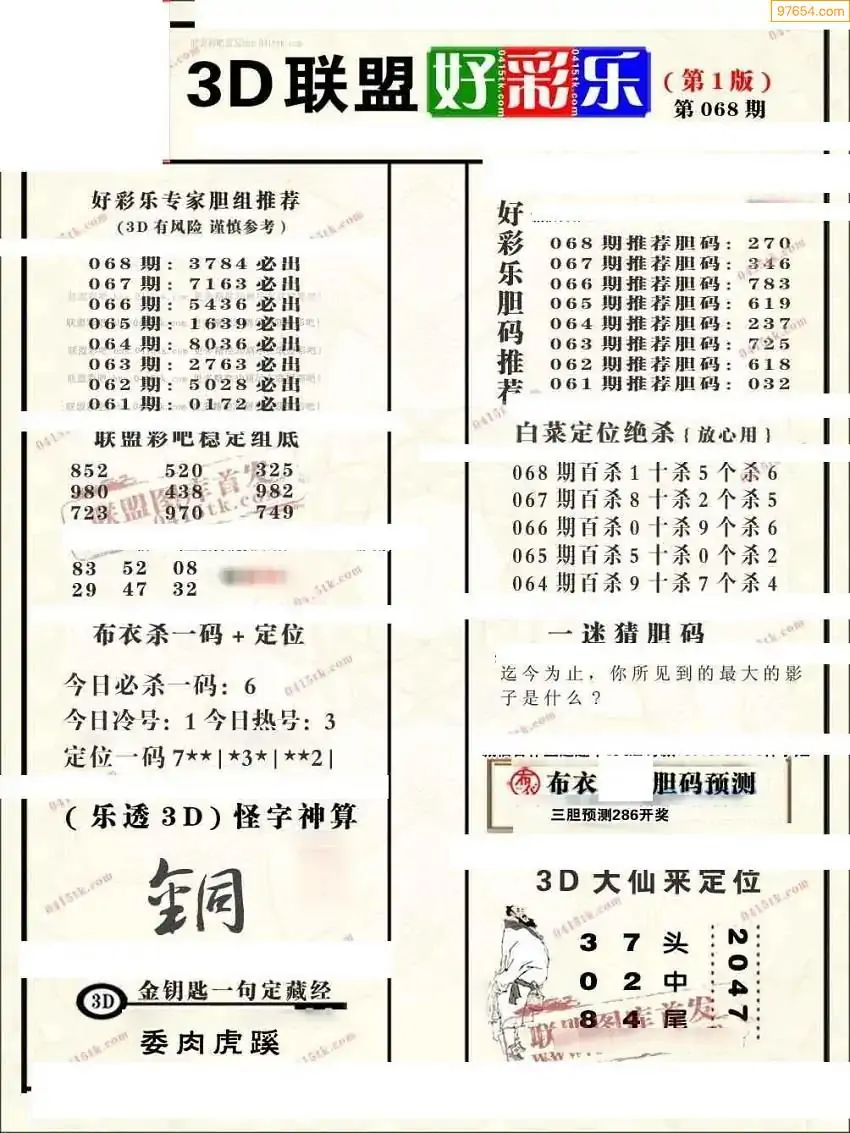 97654.com
3D联盟好彩乐
(第1版)
第068期
好彩乐专家胆组推荐
(3D有风险 谨慎参考)
068期：3784必出
067期：7163必出
066期：5436必出
065期：1639必出
064期：8036必出
063期：2763必出
062期：5028必出
061期：0172必出
联盟彩吧稳定组底
852 520 325
980 438 982
723 970 749
83 52 08
29 47 32
布衣杀一码+定位
今日必杀一码：6
今日冷号：1 今日热号：3
定位一码 7**|*3*|**2|
(乐透3D)怪字神算
銅
3D 金钥匙一句定藏经
委肉虎蹊
好彩乐胆码推荐
068期推荐胆码：270
067期推荐胆码：346
066期推荐胆码：783
065期推荐胆码：619
064期推荐胆码：237
063期推荐胆码：725
062期推荐胆码：618
061期推荐胆码：032
白菜定位绝杀{放心用}
068期百杀1十杀5个杀6
067期百杀8十杀2个杀5
066期百杀0十杀9个杀6
065期百杀5十杀0个杀2
064期百杀9十杀7个杀4
一迷猜胆码
迄今为止，你所见到的最大的影
子是什么？
布衣 胆码预测
三胆预测286开奖
3D大仙来定位
3 7 头
0 2 中
8 4 尾
2047
联盟图库首发
0415tk.com